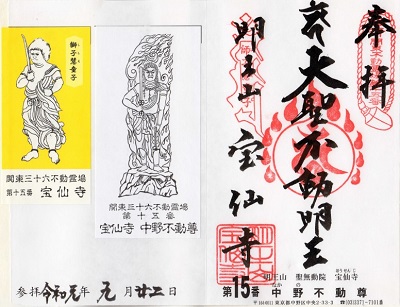 奉拝
大聖不動明王
明王山
宝仙寺
明王山 聖無動院 宝仙寺
ほうせんじ
第15番 中野不動尊
なかの
〒164-0011 東京都中野区中央2-33-3 ☎(03)3371-7101㈹
獅子慧童子
関東三十六不動霊場
第十五番 宝仙寺
関東三十六不動霊場
第十五番
宝仙寺 中野不動尊
参拝 令和元年 元月 廿二日